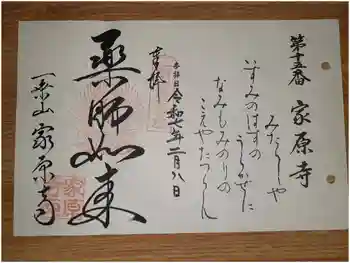 第十五番 家原寺
みたらしや
いすみのはすの
うらかぜに
なみもみのりの
こえやたつらん
参拝日 令和七年二月八日
奉拝
薬師如来
一乗山 家原寺